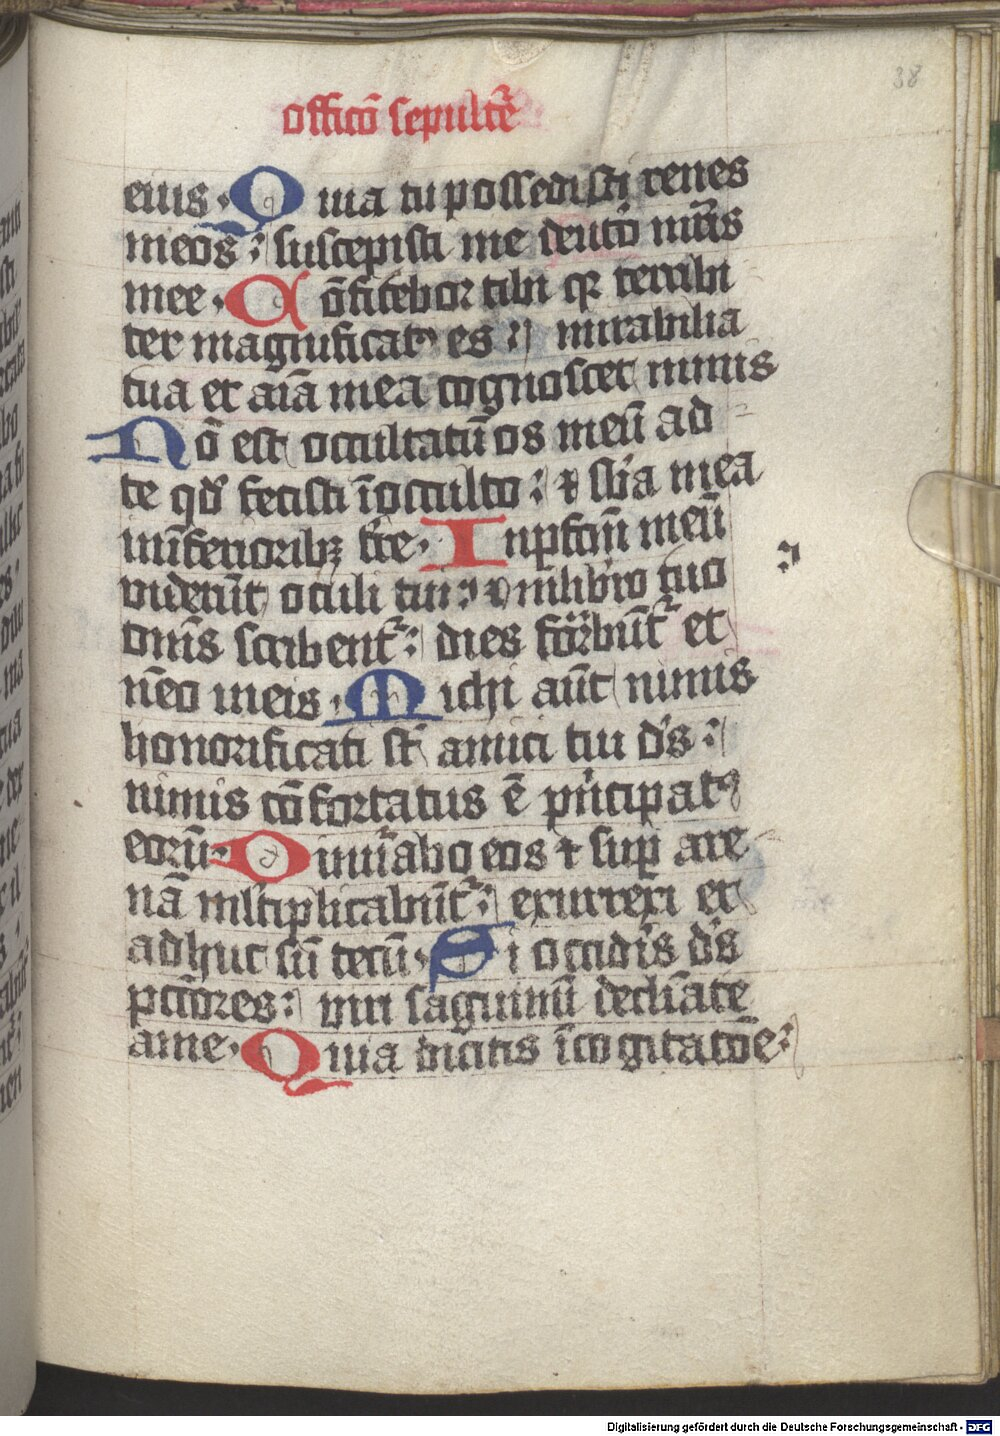 38
officō sepultē
eius · Quia tu possedisti renes
meos : suscepisti me deutō mr̄is
mee · Cōfitebor tibi qr terribi
ter magnificatꝰ es : mirabilia
tua et aīa mea cognoscet nimis
Nō est occultatū os meū ad
te qd̄ fecisti ī occulto : ⁊ sb̄a mea
in īferioribꝫ tr̄e · Inpfcm̄ meū
viderūt oculi tui : ⁊ in libro tuo
om̄s scribent᷑ : dies formabūt᷑ et
nēo in eis · Michi aūt nimis
honorificati st̄ amici tui ds̄ :
nimis cōfortatus ē principatꝰ
eorū · Dinūabo eos ⁊ sup are
nā mltiplicabūt᷑ : exurrexi et
adhuc sū tecū · Si occid̄is ds̄
pctōres : viri saguinū declīate
a me · Quia dicitis ī cogitatōe :
Digitalisierung gefördert durch die Deutsche Forschungsgemeinschaft - DFG